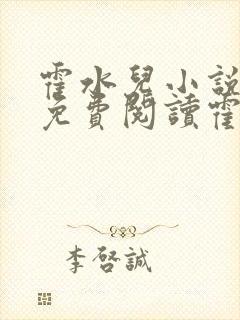 霍水兒小說
免費閱讀霍
李啓誠